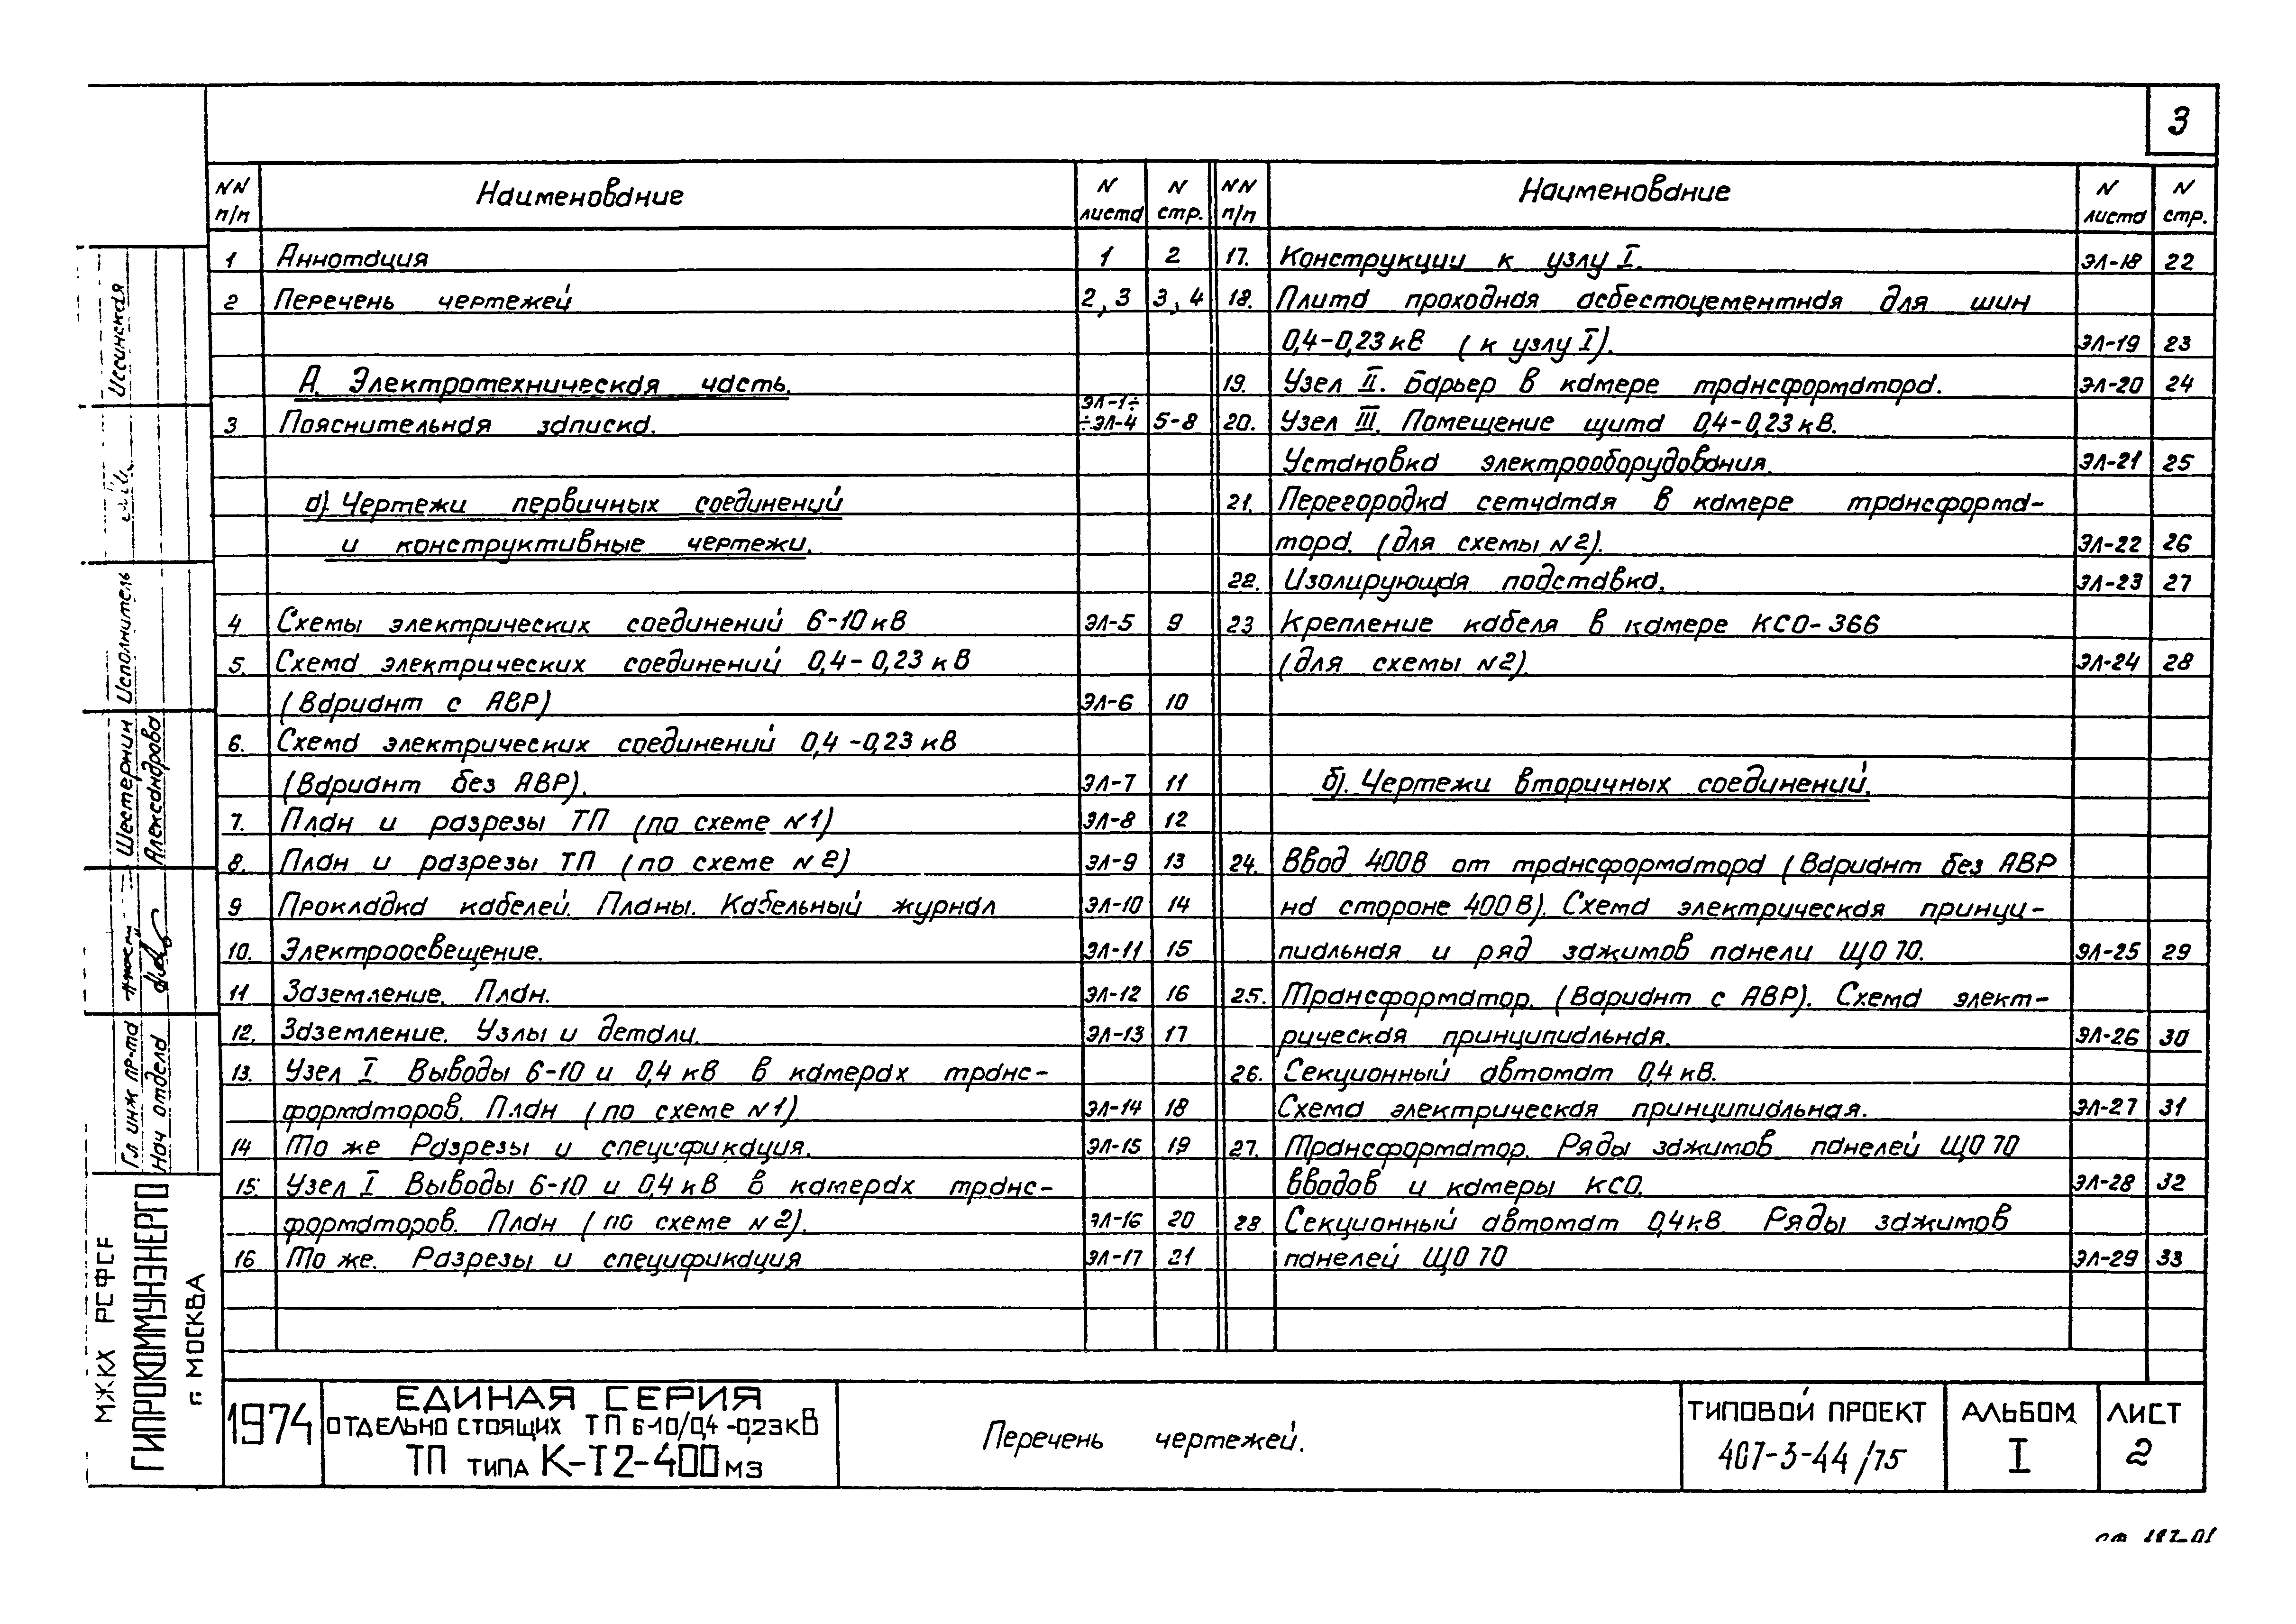 3
NN п/п Наименование N листа N стр.
1 Аннотация 1 2
2 Перечень чертежей 2, 3 3, 4
А. Электротехническая часть.
3 Пояснительная записка. ЭЛ-1÷ ÷ЭЛ-4 5-8
а). Чертежи первичных соединений
и конструктивные чертежи.
4 Схемы электрических соединений 6-10кВ ЭЛ-5 9
5. Схема электрических соединений 0,4-0,23кВ
(Вариант с АВР) ЭЛ-6 10
6. Схема электрических соединений 0,4-0,23кВ
(Вариант без АВР). ЭЛ-7 11
7. План и разрезы ТП (по схеме N1) ЭЛ-8 12
8. План и разрезы ТП (по схеме N2) ЭЛ-9 13
9 Прокладка кабелей. Планы. Кабельный журнал ЭЛ-10 14
10. Электроосвещение. ЭЛ-11 15
11 Заземление. План. ЭЛ-12 16
12. Заземление. Узлы и детали. ЭЛ-13 17
13. Узел I Выводы 6-10 и 0,4кВ в камерах транс-
форматоров. План (по схеме N1) ЭЛ-14 18
14 То же Разрезы и спецификация. ЭЛ-15 19
15. Узел I Выводы 6-10 и 0,4кВ в камерах транс-
форматоров. План (по схеме N2). ЭЛ-16 20
16 То же. Разрезы и спецификация ЭЛ-17 21
NN п/п Наименование N листа N стр.
17. Конструкции к узлу I. ЭЛ-18 22
18. Плита проходная асбестоцементная для шин
0,4-0,23кВ (к узлу I). ЭЛ-19 23
19. Узел II. Барьер в камере трансформатора. ЭЛ-20 24
20. Узел III. Помещение щита 0,4-0,23кВ.
Установка электрооборудования. ЭЛ-21 25
21. Перегородка сетчатая в камере трансформа-
тора. (для схемы N2). ЭЛ-22 26
22. Изолирующая подставка. ЭЛ-23 27
23 Крепление кабеля в камере КСО-366
(для схемы N2). ЭЛ-24 28
б). Чертежи вторичных соединений.
24. Ввод 400В от трансформатора (Вариант без АВР
на стороне 400В). Схема электрическая принци-
пиальная и ряд зажимов панели ЩО 70. ЭЛ-25 29
25. Трансформатор. (Вариант с АВР). Схема элект-
рическая принципиальная. ЭЛ-26 30
26. Секционный автомат 0,4кВ.
Схема электрическая принципиальная. ЭЛ-27 31
27. Трансформатор. Ряды зажимов панелей ЩО 70
вводов и камеры КСО. ЭЛ-28 32
28 Секционный автомат 0,4кВ. Ряды зажимов
панелей ЩО 70 ЭЛ-29 33
МЖКХ РСФСР
ГИПРОКОММУНЭНЕРГО
г. МОСКВА
Гл инж пр-та Шестернин Исполнитель Иссинская
Нач отдела Александрова
1974
ЕДИНАЯ СЕРИЯ
ОТДЕЛЬНО СТОЯЩИХ ТП 6-10/0,4-0,23кВ
ТП ТИПА К-Т2-400мз
Перечень чертежей.
ТИПОВОЙ ПРОЕКТ
407-3-44/75
АЛЬБОМ
I
ЛИСТ
2